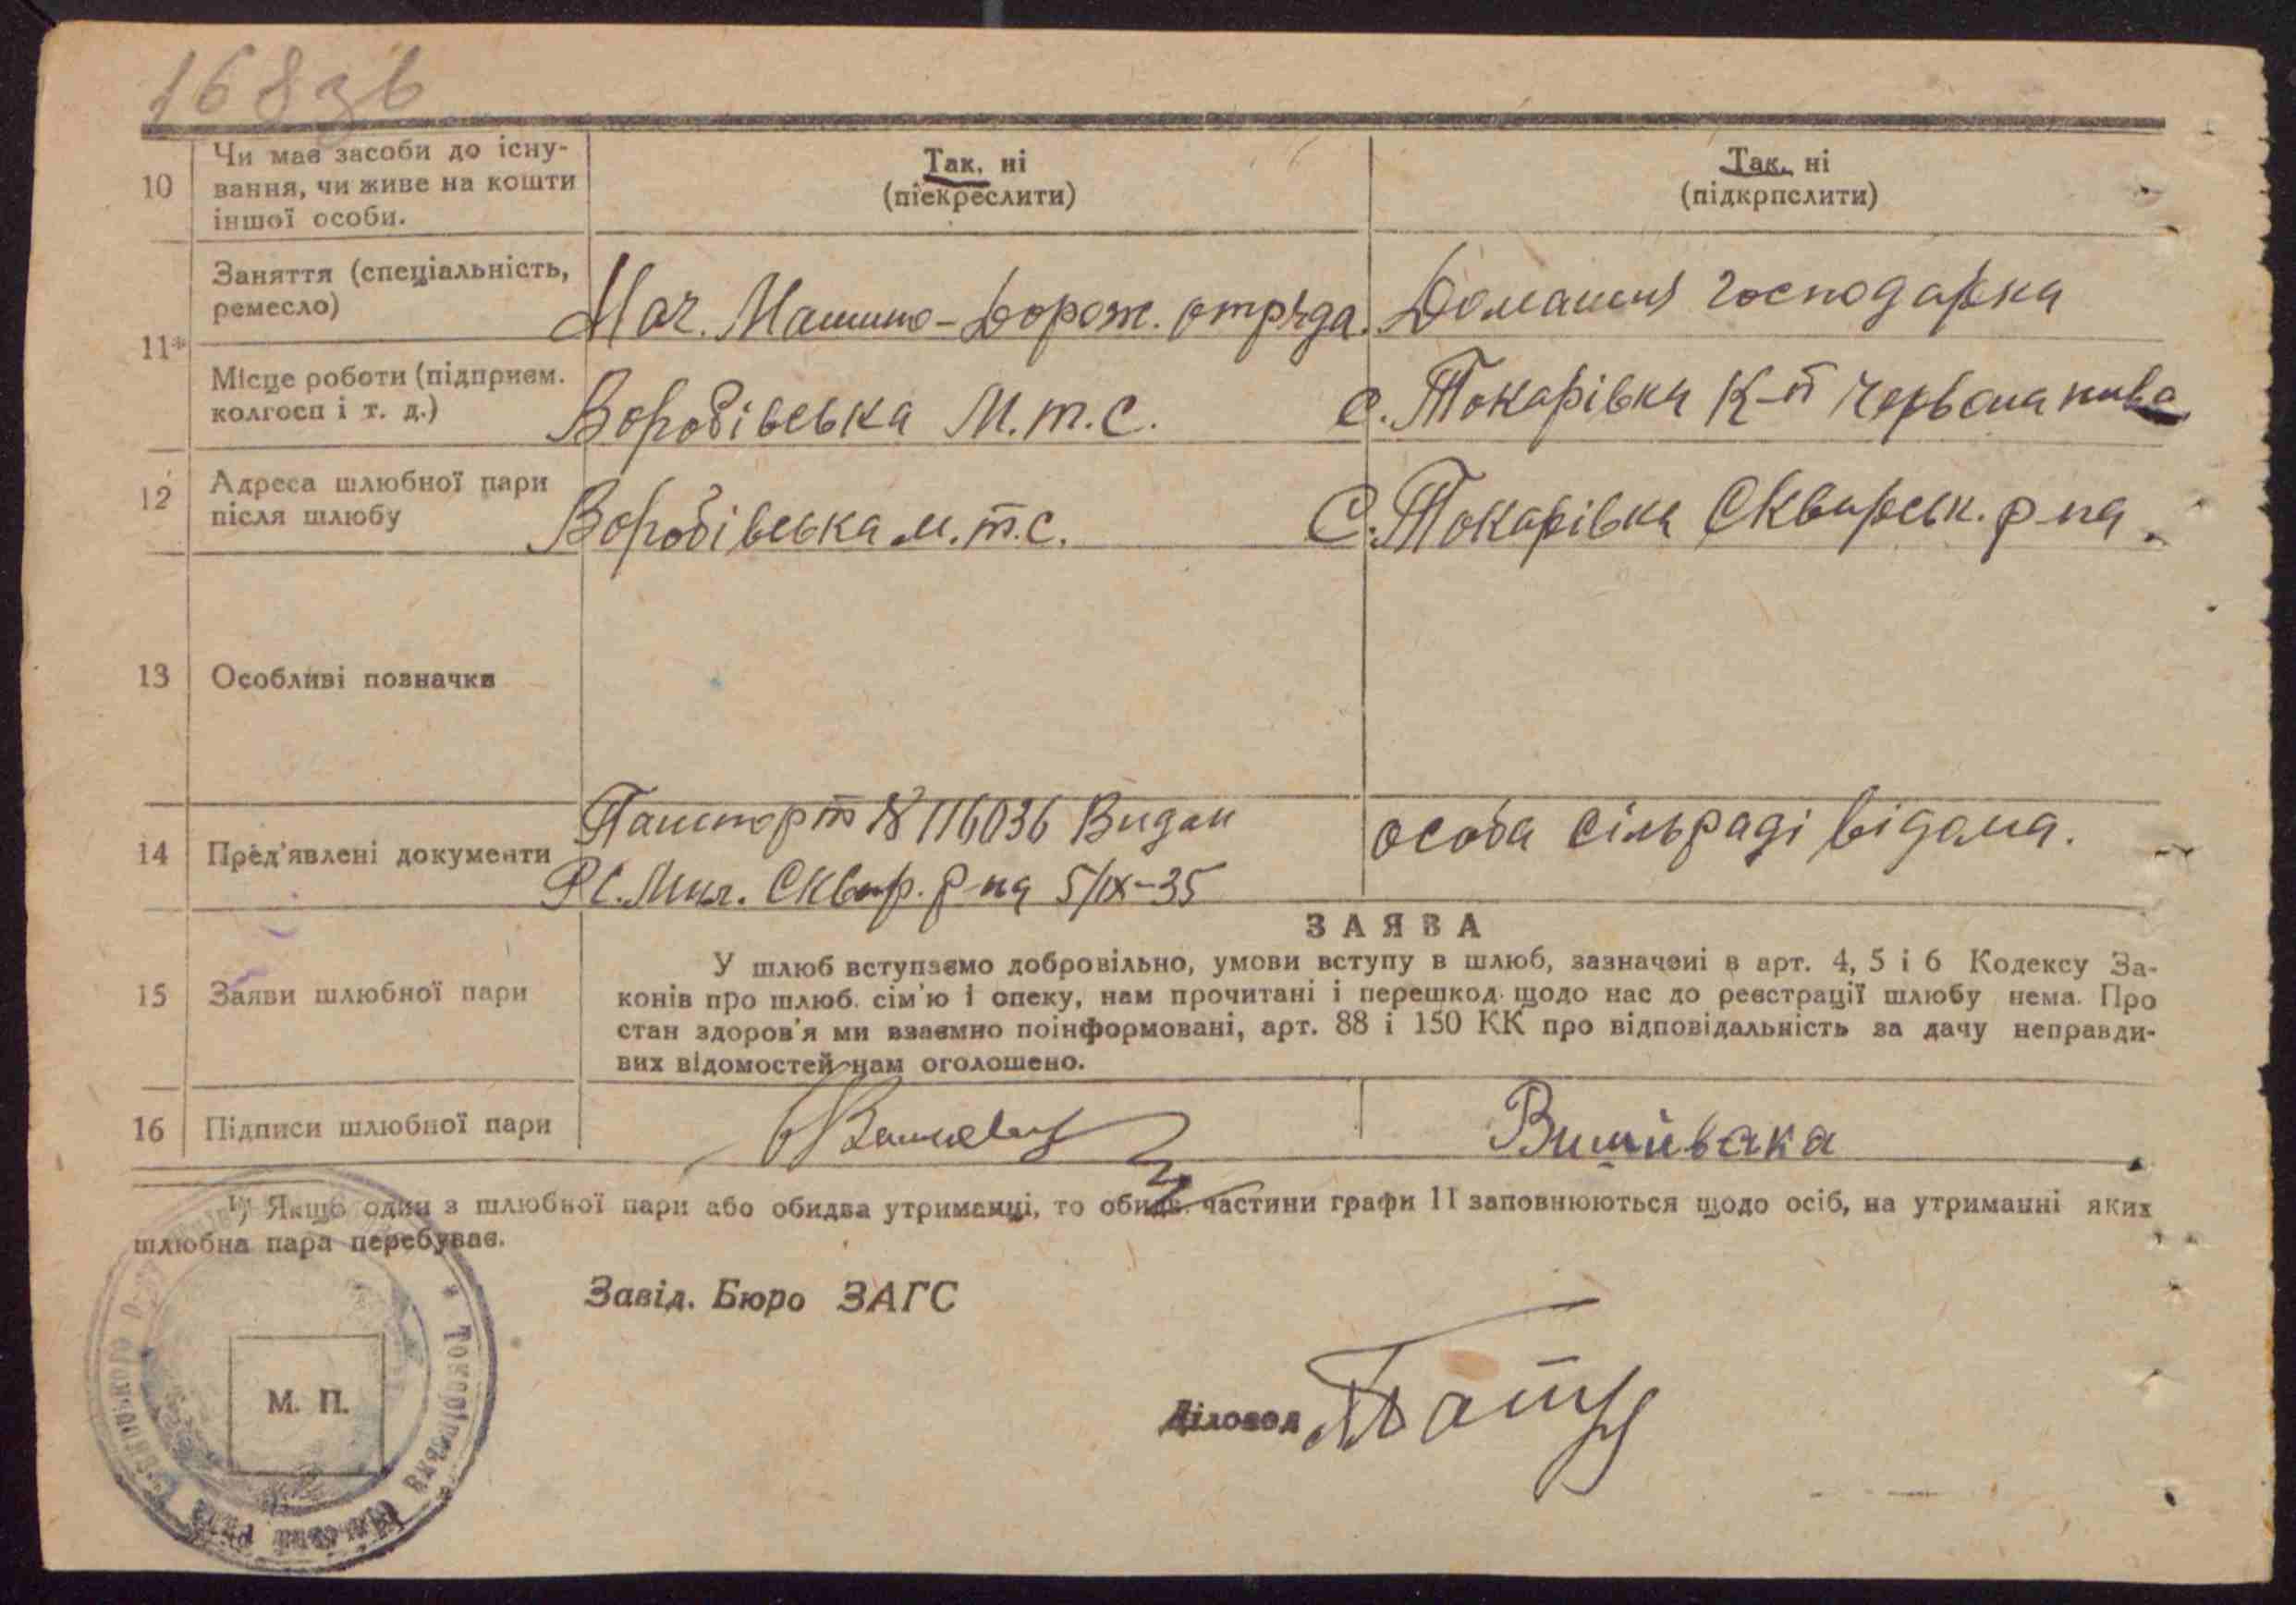 168 зв
10 Чи має засоби до існу-
вання, чи живе на кошти
іншої особи.
Так, ні
(піекреслити)
Так, ні
(підкрпслити)
11* Заняття (спеціальність,
ремесло)
Нач. Машино-Дорож. отряда.
Домашня господарка
Місце роботи (підприєм.
колгосп і т. д.)
Воробіївська М.т.С.
с. Токарівка К-п Червона нива
12 Адреса шлюбної пари
після шлюбу
Воробівська м.т.с.
С. Токарівка Сквирськ. р-на.
13 Особливі позначки
14 Пред'явлені документи
Пашпорт № 116036 Видан
РС. Мил. Сквир. р-на 5/IX-35
особа сільраді відома.
15 Заяви шлюбної пари
ЗАЯВА
У шлюб вступаємо добровільно, умови вступу в шлюб, зазначені в арт. 4, 5 і 6 Кодексу За-
конів про шлюб. сім'ю і опеку, нам прочитані і перешкод щодо нас до реєстрації шлюбу нема. Про
стан здоров'я ми взаємно поінформовані, арт. 88 і 150 КК про відповідальність за дачу неправди-
вих відомостей нам оголошено.
16 Підписи шлюбної пари
Вишивака
¹) Якщо один з шлюбної пари або обидва утриманці, то обидв. частини графи 11 заповнюються щодо осіб, на утриманні яких
шлюбна пара перебуває.
Завід. Бюро ЗАГС
М. П.
Діловод
Токарівська Сільська Рада